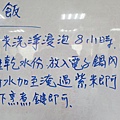 飯
米洗淨浸泡8小時
乾水份放入電子鍋內
水加至淹過紫米即可
下烹煮鍵即可